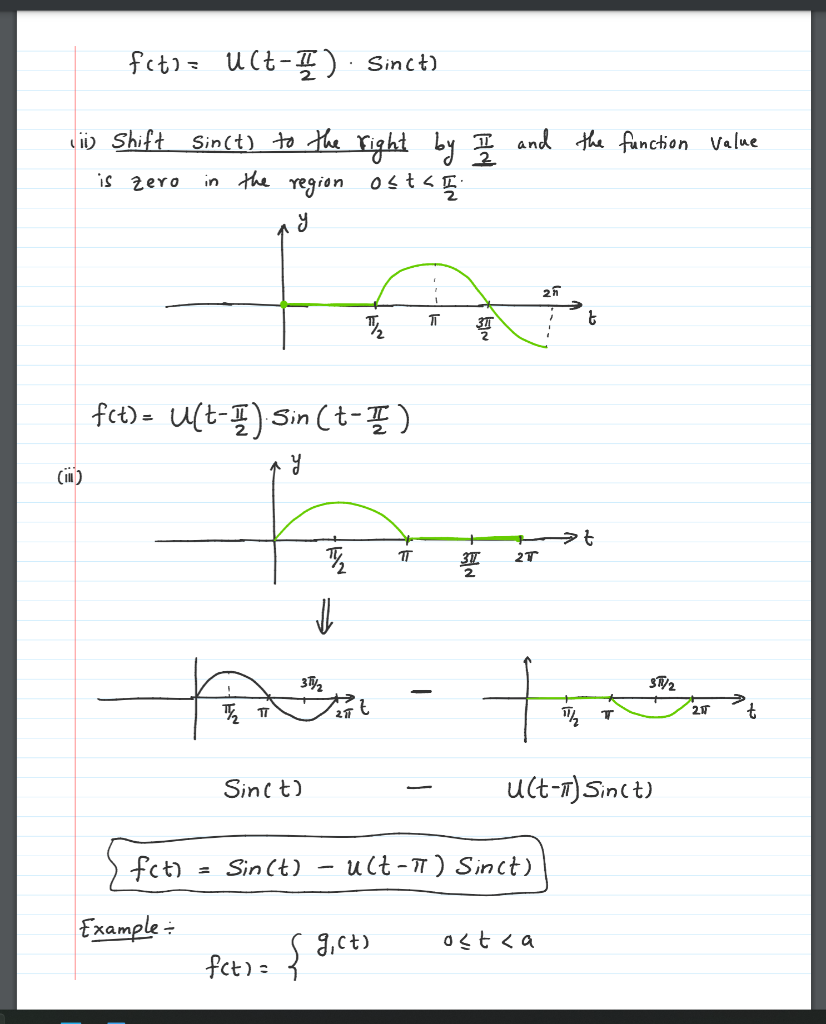 f(t) = u(t-π/2) · Sin(t)
(ii) Shift Sin(t) to the right by π/2 and the function value
is zero in the region 0 ≤ t < π/2.
y
2π
t
π/2 π 3π/2
f(t) = u(t-π/2)·Sin(t-π/2)
(iii)
y
t
π/2 π 3π/2 2π
⇓
3π/2 − 3π/2
π/2 π 2π t π/2 π 2π t
Sin(t) − u(t-π)Sin(t)
f(t) = Sin(t) − u(t-π) Sin(t)
Example ÷
f(t) = { g₁(t) 0 ≤ t < a